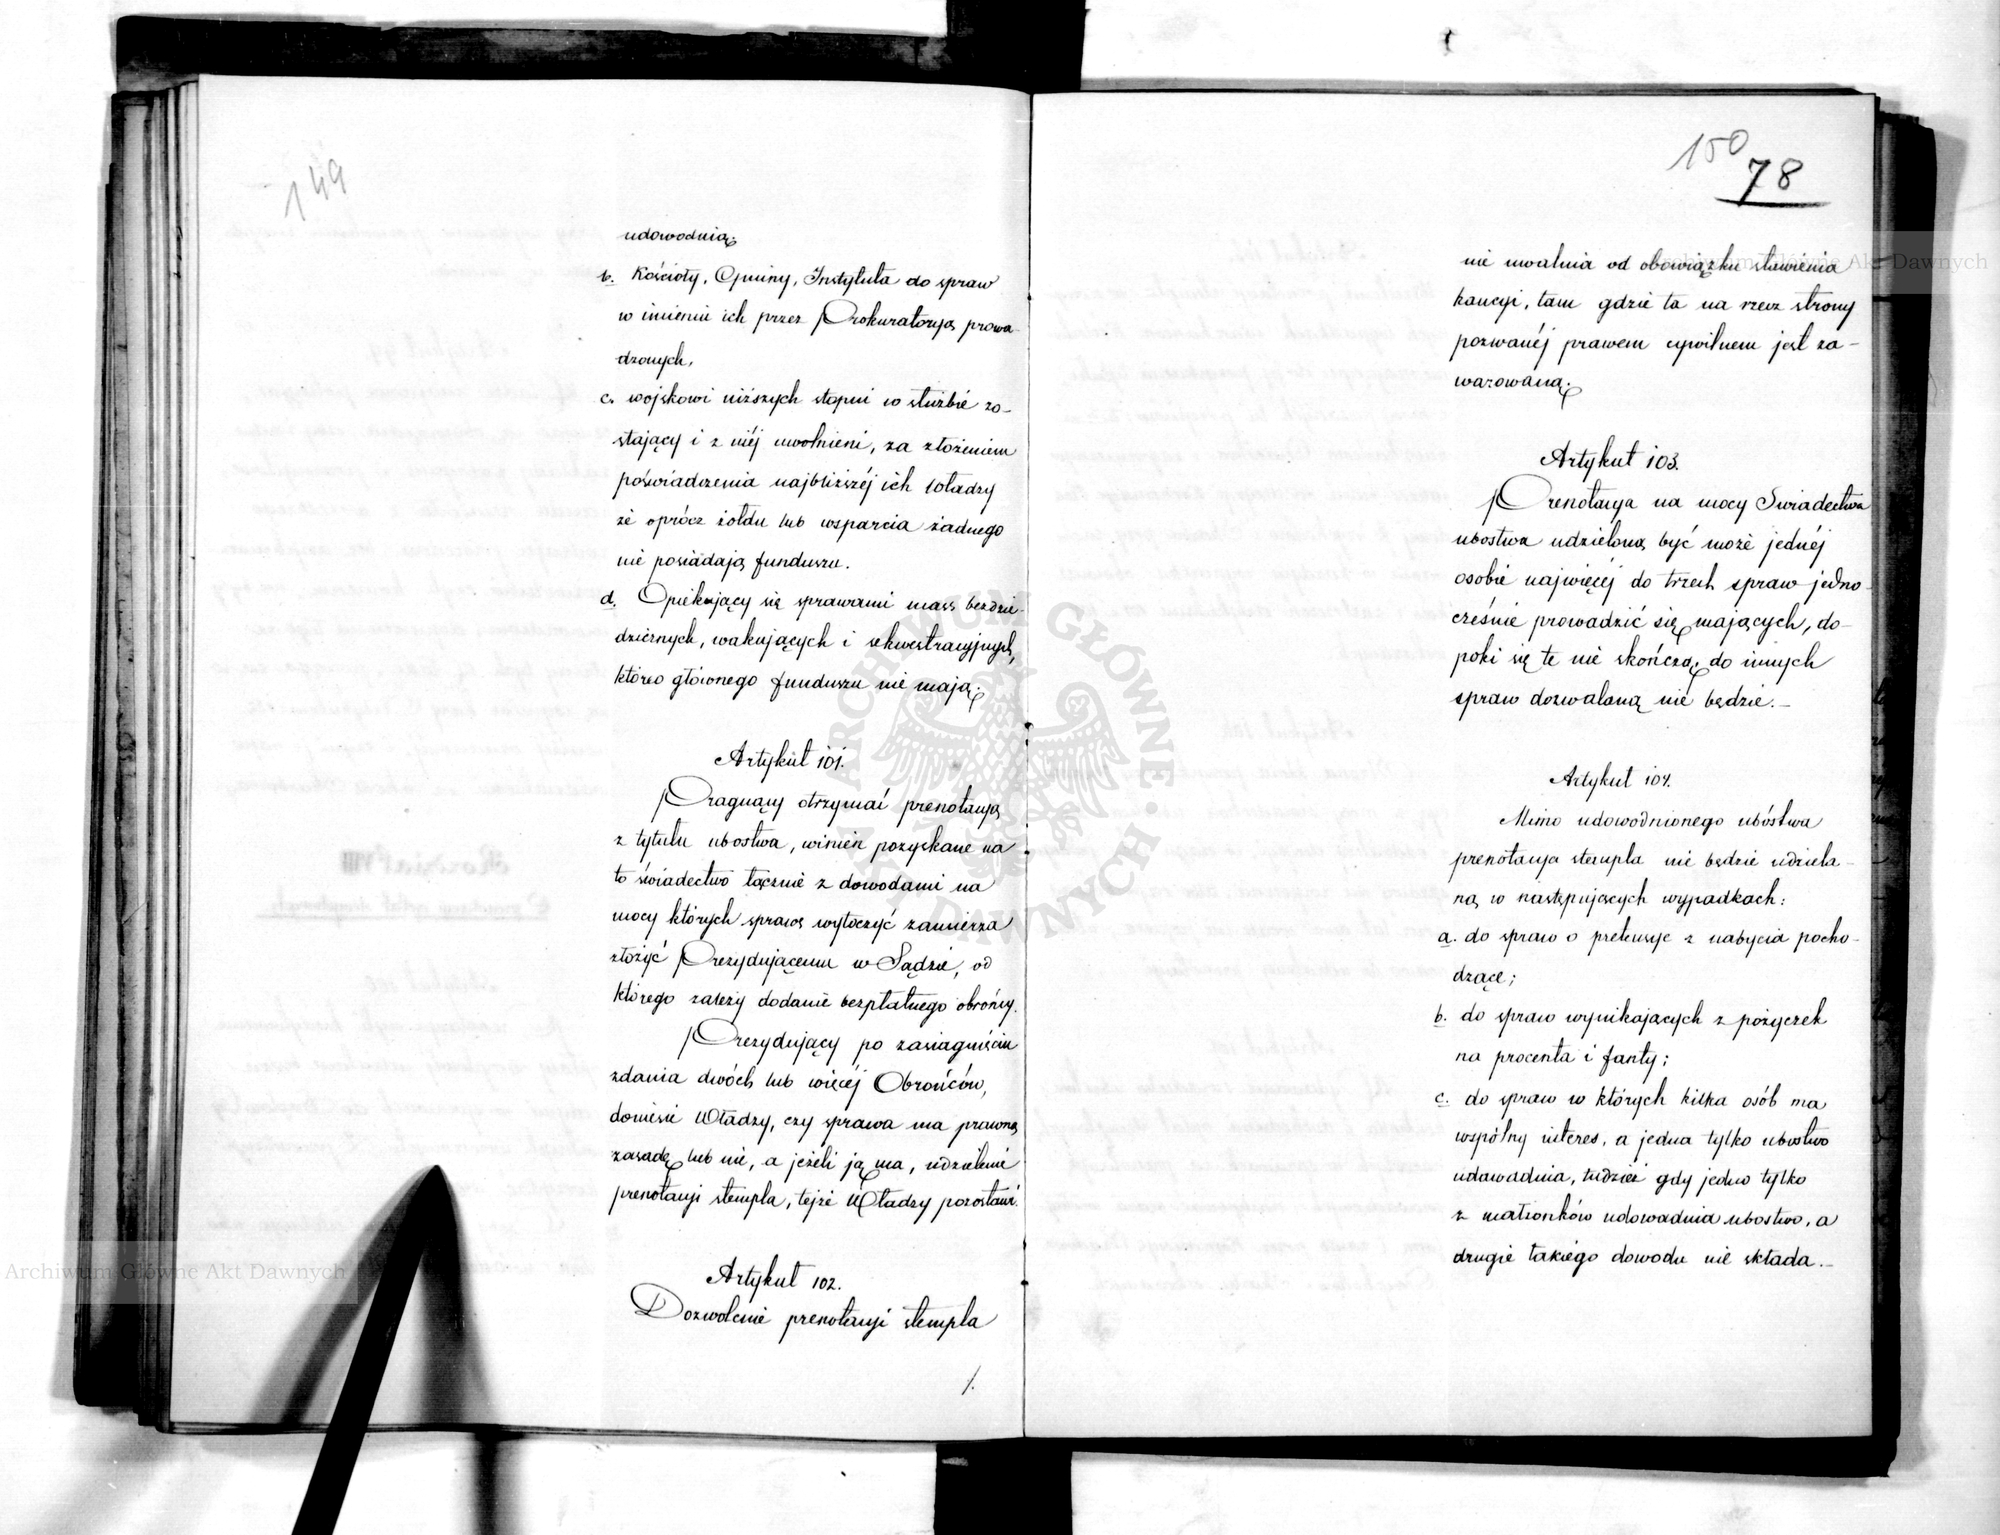 149
udowodnią.
b. Kościoły, Gminy, Instytuta do spraw
w imieniu ich przez Prokuratoryą prowa-
dzonych,
c. wojskowi niższych stopni w służbie zo-
stający i z niéj uwolnieni, za złożeniem
poświadczenia najbliższéj ich Władzy
że oprócz żołdu lub wsparcia żadnego
nie posiadają funduszu.
d. Opiekujący się sprawami mass bezdzie-
dzicznych, wakujących i sekwestracyjnych,
które głównego funduszu nie mają.
Artykuł 101.
Pragnący otrzymać prenotacyą
z tytułu ubóstwa, winien pozyskane na
to świadectwo łącznie z dowodami na
mocy których sprawę wytoczyć zamierza
złożyć Prezydującemu w Sądzie, od
którego zależy dodanie bezpłatnego obrońcy.
Prezydujący po zasiągnięciu
zdania dwóch lub więcéj Obrońców,
doniesie Władzy, czy sprawa ma prawną
zasadę lub nie, a jeżeli ją ma, udzielenie
prenotacyi stempla, tejże Władzy pozostawi.
Artykuł 102.
Dozwolenie prenotacyi stempla
/.
150
78
nie uwalnia od obowiązku stawienia
kaucyi, tam gdzie ta na rzecz strony
pozwanéj prawem cywilnem jest za-
warowaną.
Artykuł 103.
Prenotacya na mocy Świadectwa
ubóstwa udzieloną być może jednéj
osobie najwięcéj do trzech spraw jedno-
cześnie prowadzić się mających, do-
póki się te nie skończą, do innych
spraw dozwalaną nie będzie.
Artykuł 104.
Mimo udowodnionego ubóstwa
prenotacya stempla nie będzie udziela-
ną w następujących wypadkach:
a. do spraw o pretensye z nabycia pocho-
dzące;
b. do spraw wynikających z pożyczek
na procenta i fanty;
c. do spraw w których kilka osób ma
wspólny interes, a jedna tylko ubóstwo
udawadnia, tudzież gdy jedno tylko
z małżonków udowadnia ubóstwo, a
drugie takiego dowodu nie składa.
Archiwum Główne Akt Dawnych
Archiwum Główne Akt Dawnych
ARCHIWUM GŁÓWNE AKT DAWNYCH